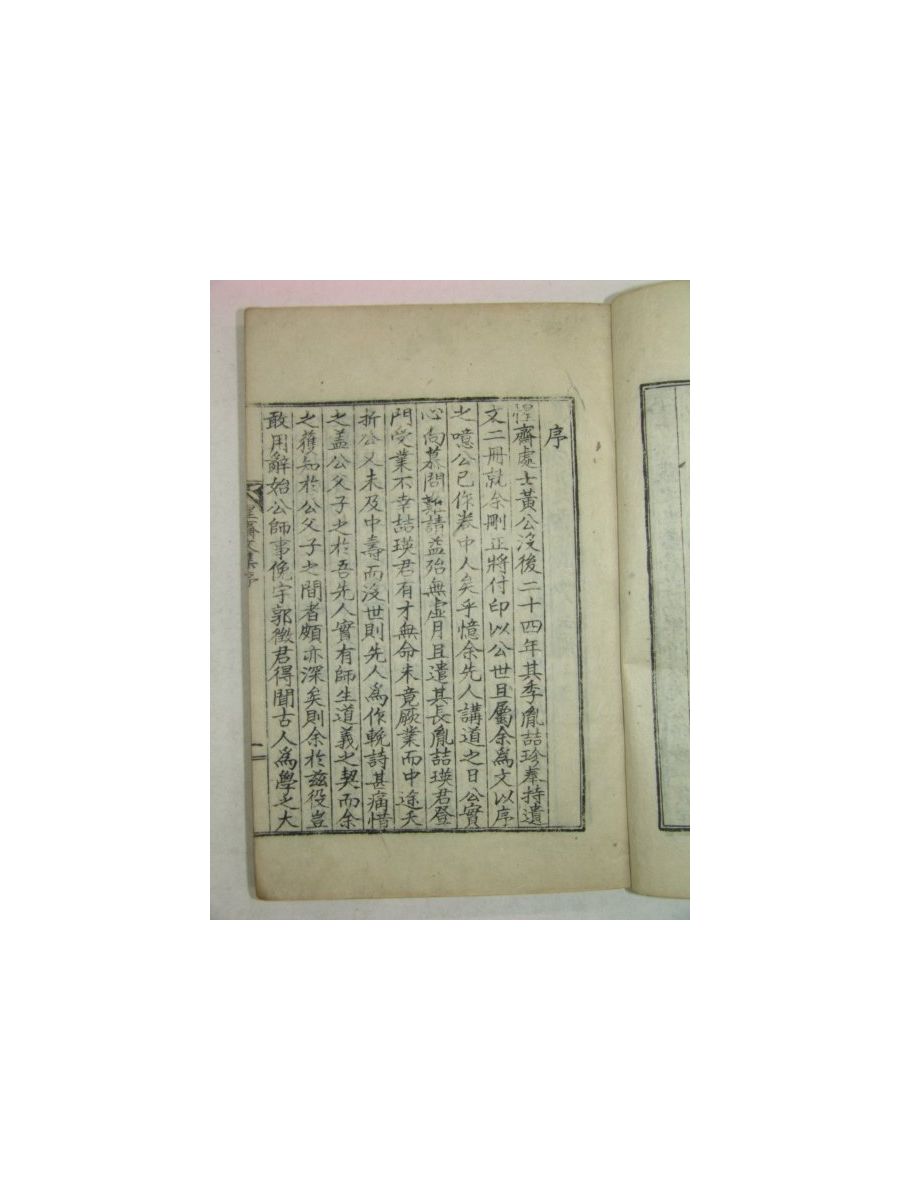 序
惺齋處士黃公沒後二十四年其季胤喆珍奉持遺
文二冊就余刪正將付印以公世且屬余爲文以序
之噫公已作卷中人矣乎憶余先人講道之日公實
心向慕問難請益殆無虛月且遣其長胤喆瑛君登
門受業不幸喆瑛君有才無命未竟厥業而中途夭
折公又未及中壽而沒世則先人爲作輓詩甚痛惜
之盖公父子之於吾先人實有師生道義之契而余
之獲知於公父子之間者頗亦深矣則余於玆役豈
敢用辭始公師事俛宇郭徵君得聞古人爲學之大
惺齋文集序
一